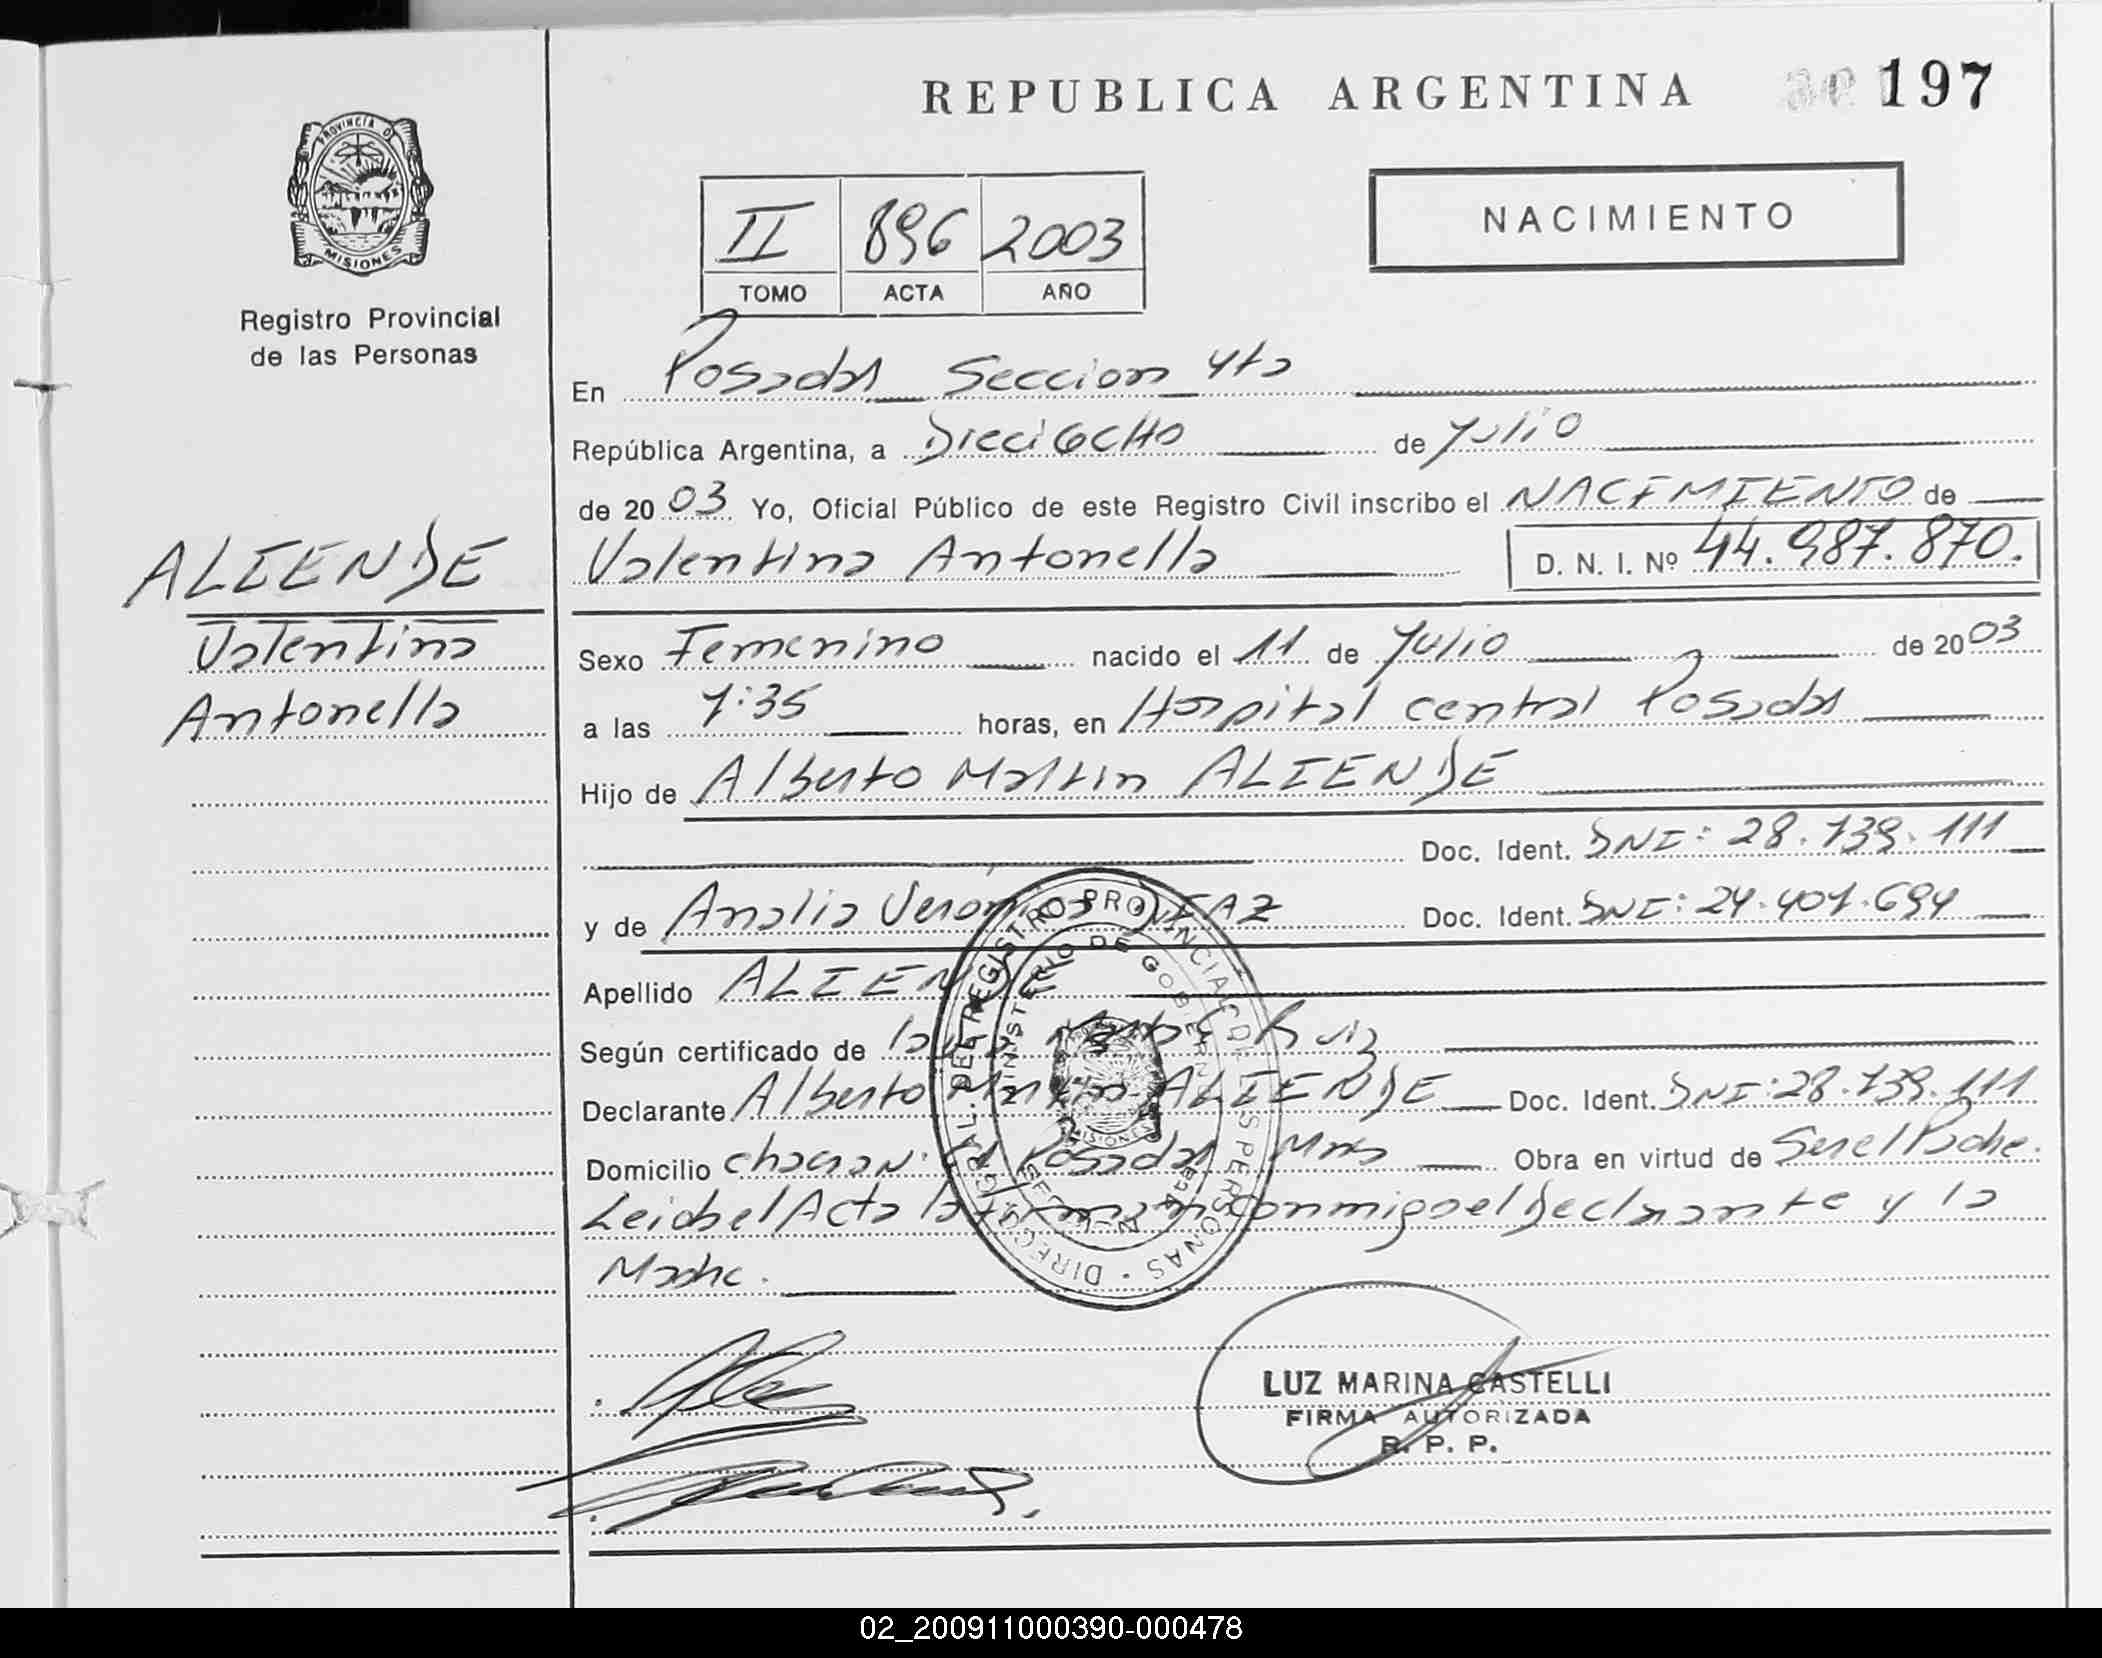 REPUBLICA ARGENTINA 197
PROVINCIA D
MISIONES
Registro Provincial
de las Personas
NACIMIENTO
II 896 2003
TOMO ACTA AÑO
En Posadas Seccion 4ta
República Argentina, a Dieciocho de Julio
de 2003 Yo, Oficial Público de este Registro Civil inscribo el NACIMIENTO de
Valentina Antonella D. N. I. Nº 44.987.870.
ALIENDE
Valentina
Antonella
Sexo Femenino nacido el 11 de Julio de 2003
a las 7:35 horas, en Hospital central Posadas
Hijo de Alberto Martin ALIENDE
Doc. Ident. DNI: 28.739.111
y de Analia Veronica Doc. Ident. DNI: 24.401.694
Apellido ALIENDE
Según certificado de Ruiz
Declarante Alberto Martin ALIENDE Doc. Ident. DNI: 28.739.111
Domicilio Posadas Mnes Obra en virtud de Ser el Padre.
Leida el Acta la firman conmigo el Declarante y la
Madre.
DIREC. GRAL. DEL REGISTRO PROVINCIAL DE LAS PERSONAS
MINISTERIO DE GOBIERNO
MISIONES
LUZ MARINA CASTELLI
FIRMA AUTORIZADA
R. P. P.
02_200911000390-000478